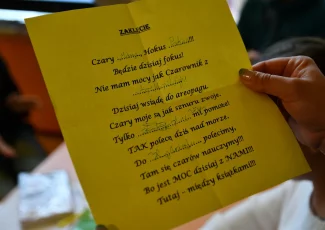 ZAKLĘCIE
Czary Hokus !!!
Będzie dzisiaj fokus!
Nie mam mocy jak Czarownik z
Dzisiaj wsiądę do areopagu.
Czary moje są jak sznury zwoje.
Tylko mi pomoże!
TAK polecę dziś nad morze.
Do polecimy,
Tam się czarów nauczymy!!!
Bo jest MOC dzisiaj z NAMI!!!
Tutaj – między książkami!!!